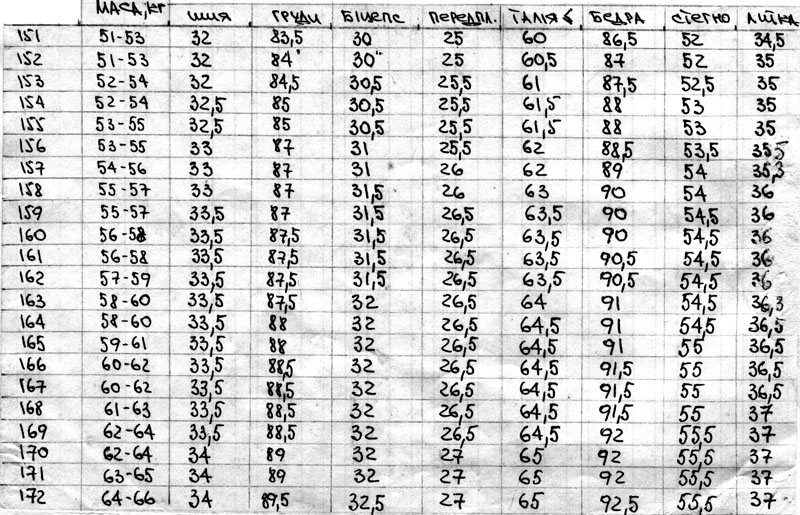 МАСА, кг ШИЯ ГРУДИ БІЦЕПС ПЕРЕДПЛ. ТАЛІЯ БЕДРА СТЕГНО ЛИТКА
151 51-53 32 83,5 30 25 60 86,5 52 34,5
152 51-53 32 84 30 25 60,5 87 52 35
153 52-54 32 84,5 30,5 25,5 61 87,5 52,5 35
154 52-54 32,5 85 30,5 25,5 61,5 88 53 35
155 53-55 32,5 85 30,5 25,5 61,5 88 53 35
156 53-55 33 87 31 25,5 62 88,5 53,5 35,5
157 54-56 33 87 31 26 62 89 54 35,3
158 55-57 33 87 31,5 26 63 90 54 36
159 55-57 33,5 87 31,5 26,5 63,5 90 54,5 36
160 56-58 33,5 87,5 31,5 26,5 63,5 90 54,5 36
161 56-58 33,5 87,5 31,5 26,5 63,5 90,5 54,5 36
162 57-59 33,5 87,5 31,5 26,5 63,5 90,5 54,5 36
163 58-60 33,5 87,5 32 26,5 64 91 54,5 36,3
164 58-60 33,5 88 32 26,5 64,5 91 54,5 36,5
165 59-61 33,5 88 32 26,5 64,5 91 55 36,5
166 60-62 33,5 88,5 32 26,5 64,5 91,5 55 36,5
167 60-62 33,5 88,5 32 26,5 64,5 91,5 55 36,5
168 61-63 33,5 88,5 32 26,5 64,5 91,5 55 37
169 62-64 33,5 88,5 32 26,5 64,5 92 55,5 37
170 62-64 34 89 32 27 65 92 55,5 37
171 63-65 34 89 32 27 65 92 55,5 37
172 64-66 34 89,5 32,5 27 65 92,5 55,5 37